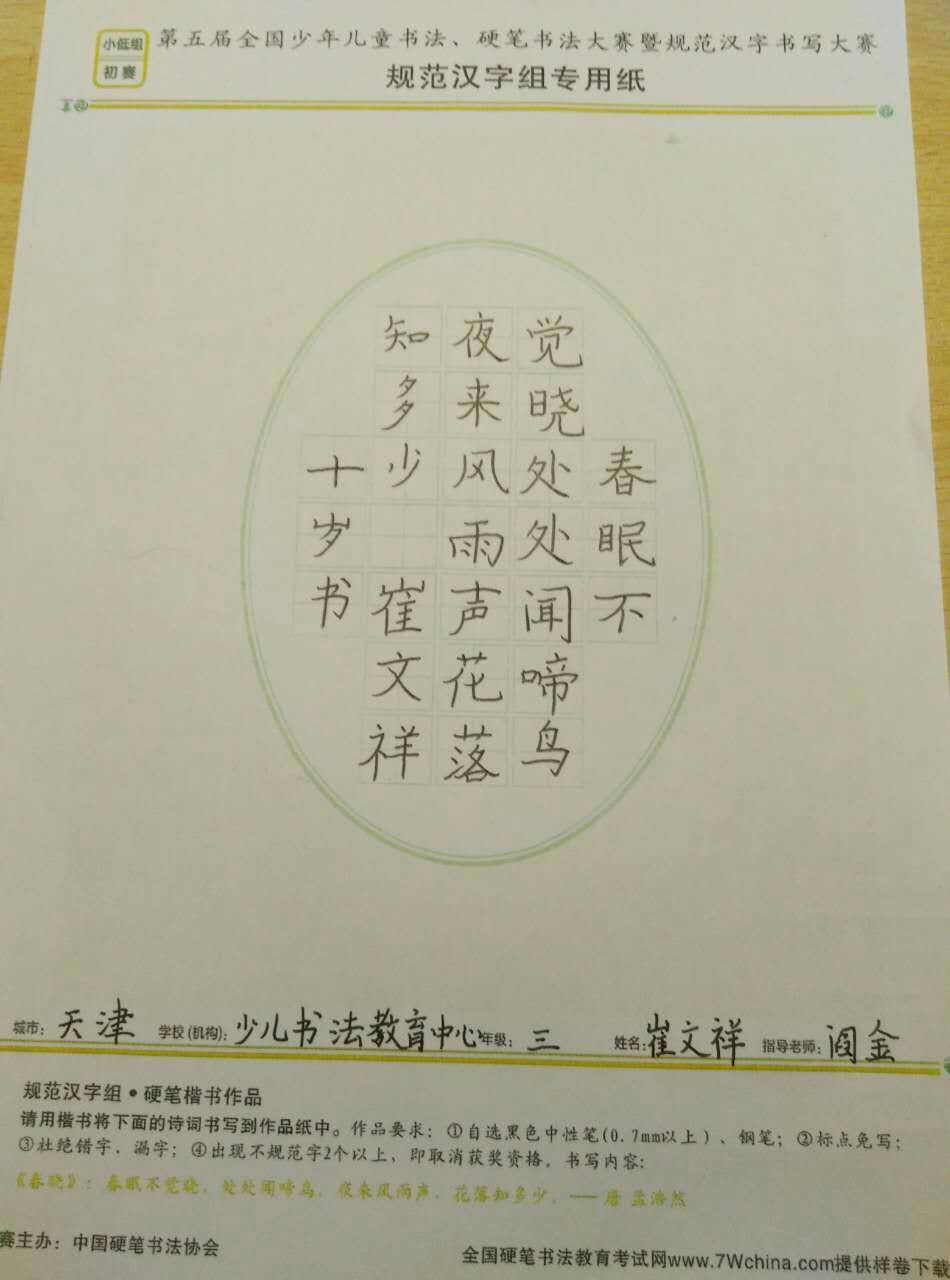 小低组
初赛
第五届全国少年儿童书法、硬笔书法大赛暨规范汉字书写大赛
规范汉字组专用纸
春眠不
觉晓处处闻啼鸟
夜来风雨声花落
知多少 崔文祥
十岁书
城市: 天津 学校(机构): 少儿书法教育中心 年级: 三 姓名: 崔文祥 指导老师: 阎金
规范汉字组•硬笔楷书作品
请用楷书将下面的诗词书写到作品纸中。作品要求: ①自选黑色中性笔(0.7mm以上)、钢笔; ②标点免写;
③杜绝错字、漏字; ④出现不规范字2个以上, 即取消获奖资格。书写内容:
《春晓》: 春眠不觉晓, 处处闻啼鸟, 夜来风雨声, 花落知多少。——唐 孟浩然
赛主办: 中国硬笔书法协会
全国硬笔书法教育考试网www.7Wchina.com提供样卷下载